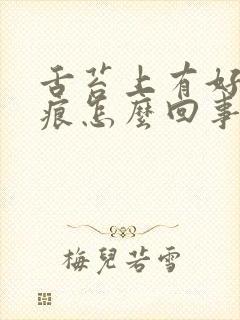 舌苔上有好
痕怎麼回事
梅兒若雪